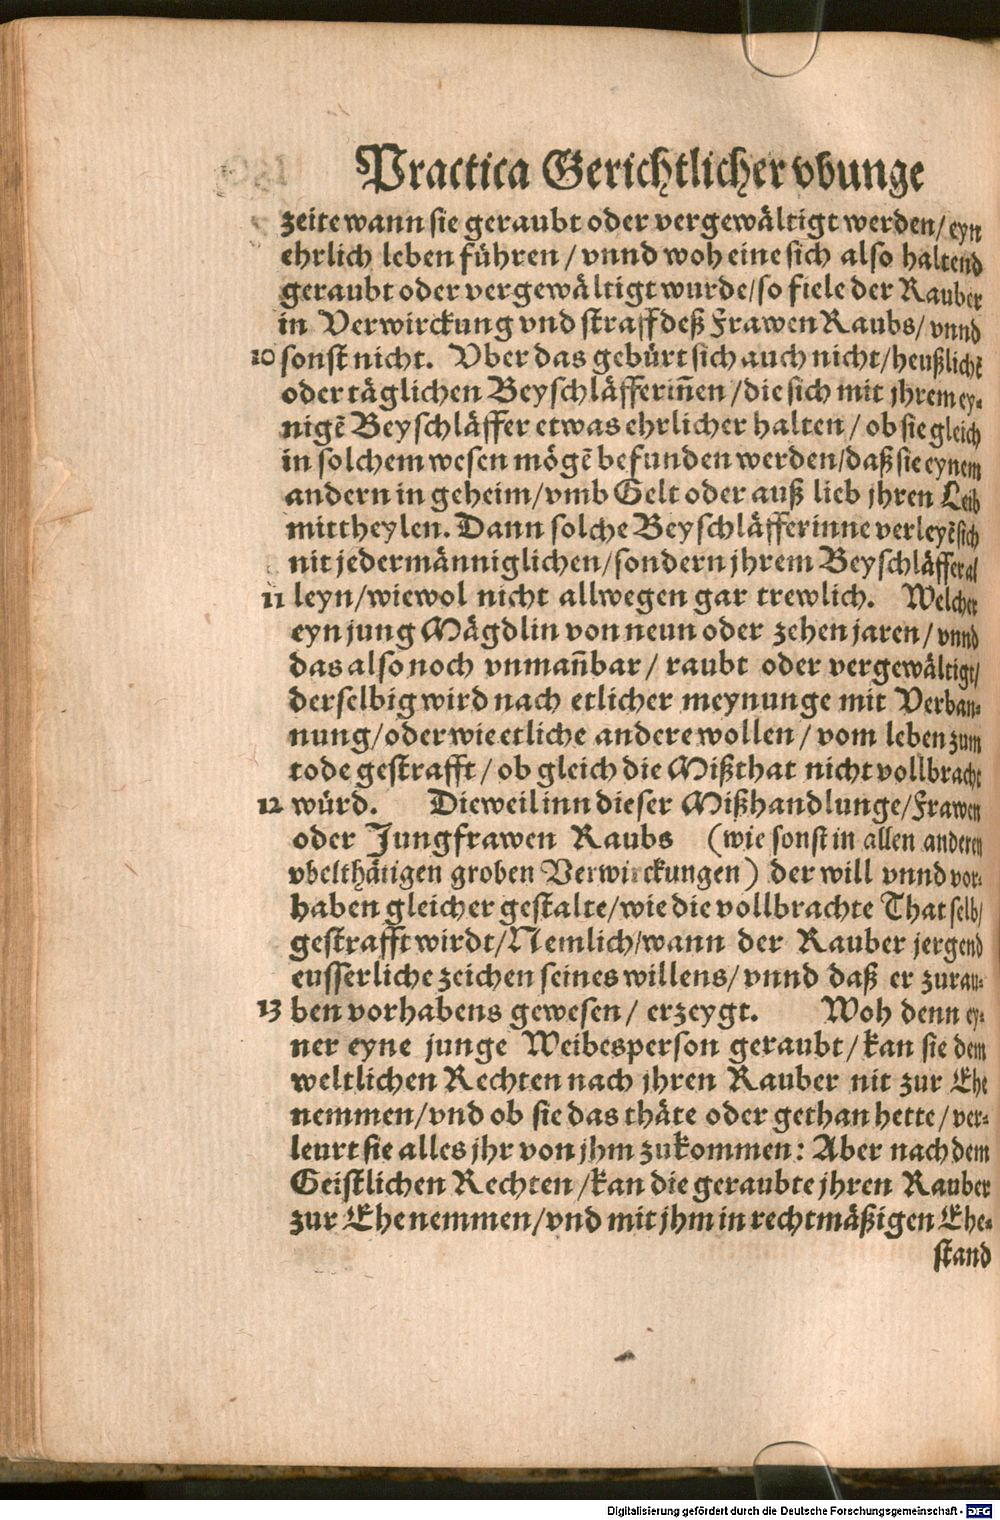 Practica Gerichtlicher vbunge
zeite wann sie geraubt oder vergewältigt werden/ eyn
ehrlich leben führen / vnnd woh eine sich also haltend
geraubt oder vergewältigt wurde/so fiele der Rauber
in Verwirckung vnd straff deß Frawen Raubs/ vnnd
10 sonst nicht. Vber das gebürt sich auch nicht/heußlichẽ
oder täglichen Beyschläfferiñen /die sich mit jhrem ey-
nigẽ Beyschläffer etwas ehrlicher halten / ob sie gleich
in solchem wesen mögẽ befunden werden/daß sie eynem
andern in geheim/vmb Gelt oder auß lieb jhren Leib
mittheylen. Dann solche Beyschläfferinne verleyẽ sich
nit jedermänniglichen/sondern jhrem Beyschläffer al
11 leyn/wiewol nicht allwegen gar trewlich. Welcher
eyn jung Mägdlin von neun oder zehen jaren / vnnd
das also noch vnmañbar / raubt oder vergewältigt/
derselbig wird nach etlicher meynunge mit Verban-
nung/oder wie etliche andere wollen / vom leben zum
tode gestrafft / ob gleich die Mißthat nicht vollbracht
12 würd. Dieweil inn dieser Mißhandlunge/Frawen
oder Jungfrawen Raubs (wie sonst in allen anderen
vbelthätigen groben Verwirckungen) der will vnnd vor-
haben gleicher gestalte/wie die vollbrachte That selb/
gestrafft wirdt/Nemlich/wann der Rauber jergend
eusserliche zeichen seines willens/ vnnd daß er zurau-
13 ben vorhabens gewesen/ erzeygt. Woh denn ey-
ner eyne junge Weibesperson geraubt/kan sie dem
weltlichen Rechten nach jhren Rauber nit zur Ehe
nemmen/vnd ob sie das thäte oder gethan hette/ver-
leurt sie alles jhr von jhm zukommen: Aber nach dem
Geistlichen Rechten /kan die geraubte jhren Rauber
zur Ehe nemmen/vnd mit jhm in rechtmäßigen Ehe-
stand
Digitalisierung gefördert durch die Deutsche Forschungsgemeinschaft - DFG